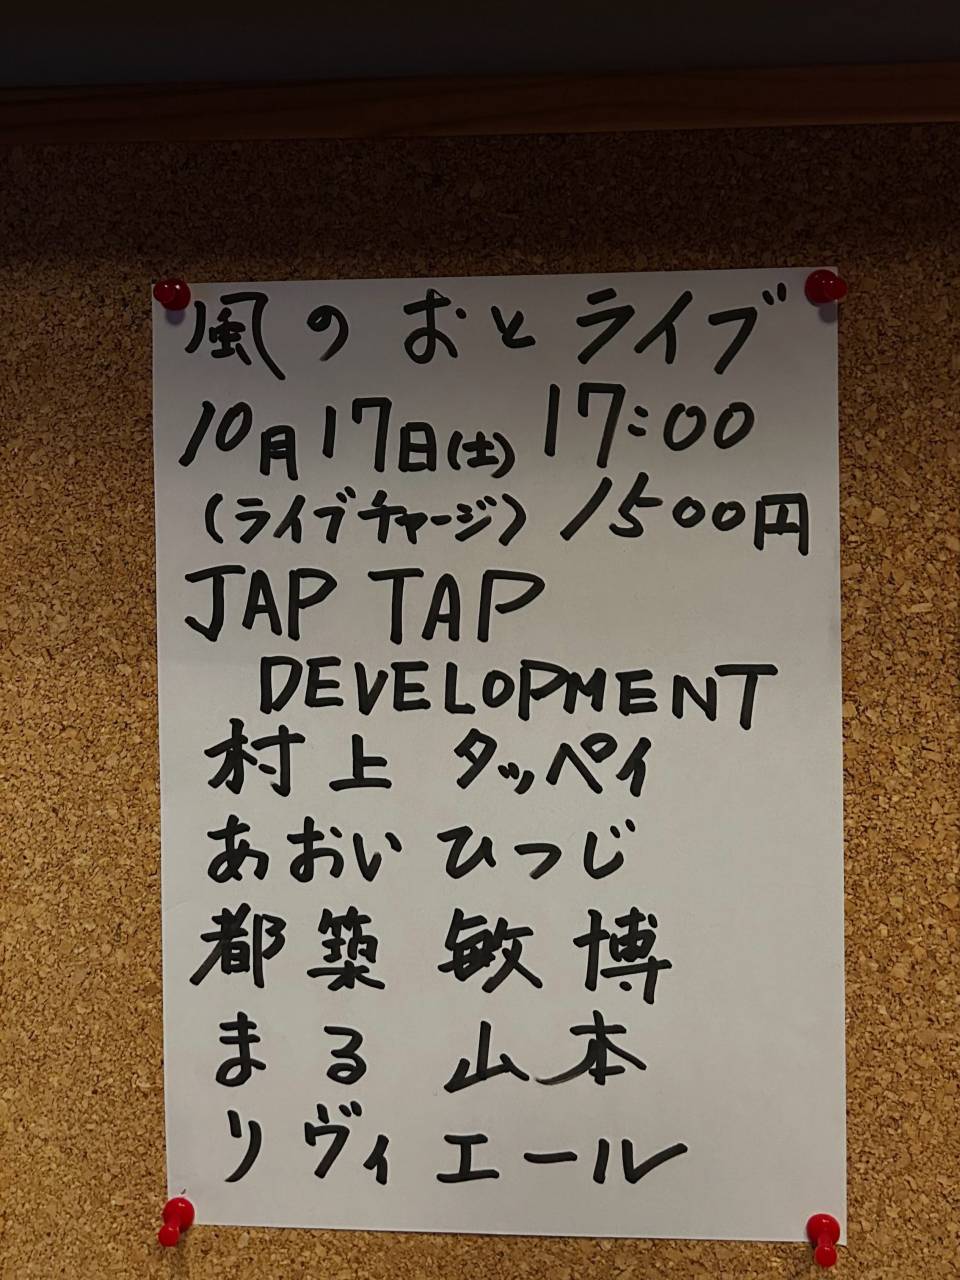 風のおとライブ
10月17日(土) 17:00
(ライブチャージ) 1500円
JAP TAP
DEVELOPMENT
村上 タッペイ
あおい ひつじ
都築 敏博
まる 山本
リヴィエール